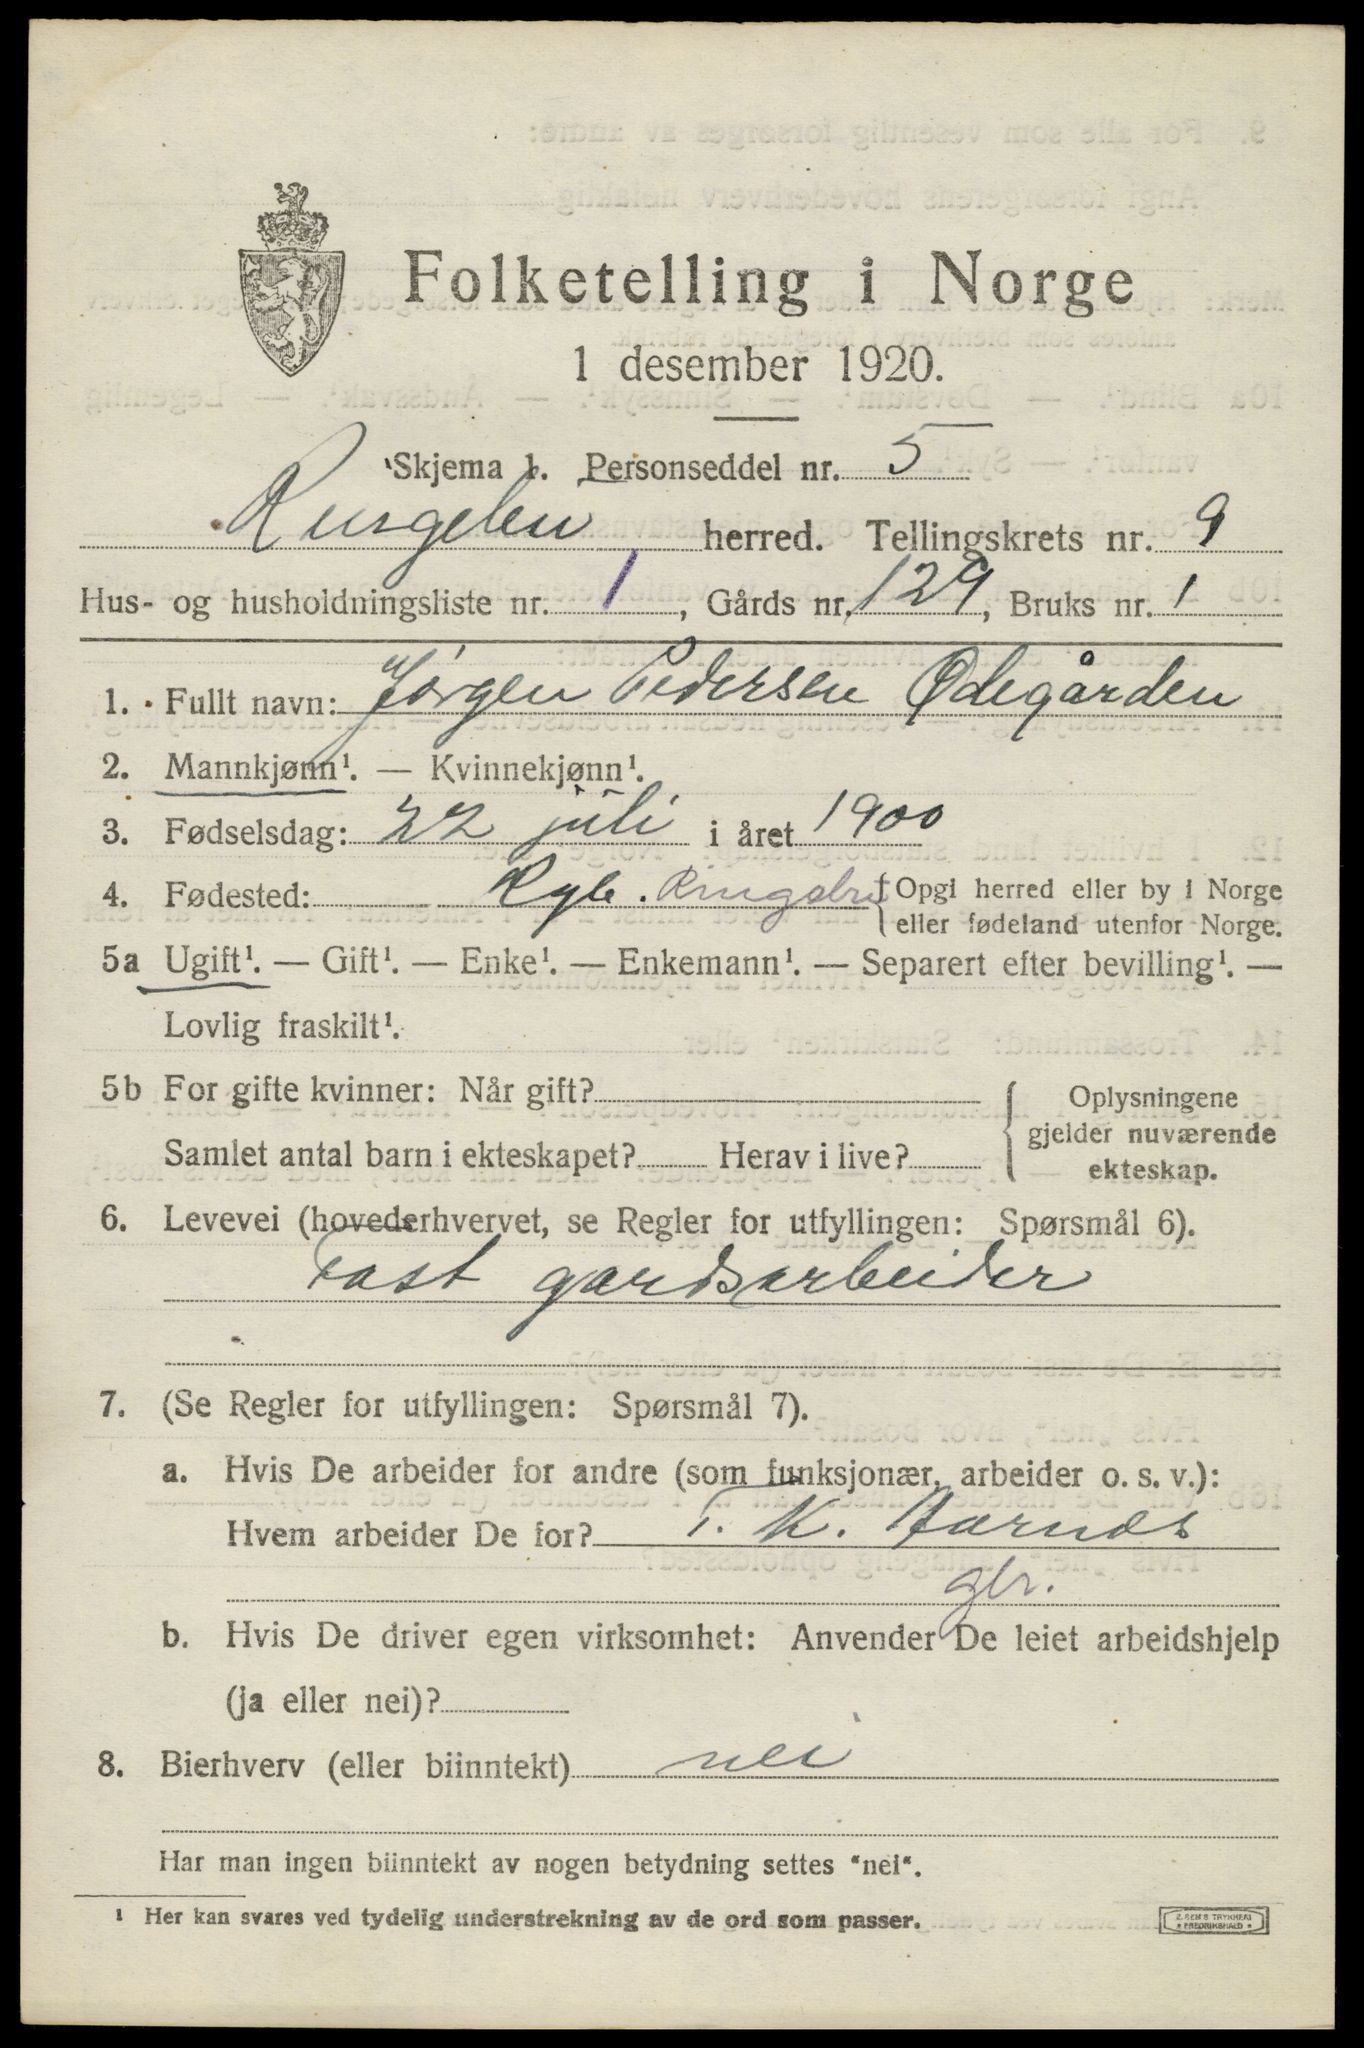 Folketelling i Norge
1 desember 1920.
Skjema 1. Personseddel nr. 5
Ringebu herred. Tellingskrets nr. 9
Hus- og husholdningsliste nr. 1, Gårds nr. 129, Bruks nr. 1
1. Fullt navn: Jörgen Pedersen Ødegården
2. Mannkjønn¹. — Kvinnekjønn¹.
3. Fødselsdag: 22 juli i året 1900
4. Fødested: Ringebu {Opgi herred eller by i Norge
eller fødeland utenfor Norge.
5a Ugift¹. — Gift¹. — Enke¹. — Enkemann¹. — Separert efter bevilling¹. —
Lovlig fraskilt¹.
5b For gifte kvinner: Når gift? Oplysningene
gjelder nuværende
Samlet antal barn i ekteskapet? Herav i live? ekteskap.
6. Levevei (hovederhvervet, se Regler for utfyllingen: Spørsmål 6).
Fast gardsarbeider
7. (Se Regler for utfyllingen: Spørsmål 7).
a. Hvis De arbeider for andre (som funksjonær, arbeider o. s. v.):
Hvem arbeider De for? T. K. Aarnes
gbr.
b. Hvis De driver egen virksomhet: Anvender De leiet arbeidshjelp
(ja eller nei)?
8. Bierhverv (eller biinntekt) nei
Har man ingen biinntekt av nogen betydning settes "nei".
¹ Her kan svares ved tydelig understrekning av de ord som passer.